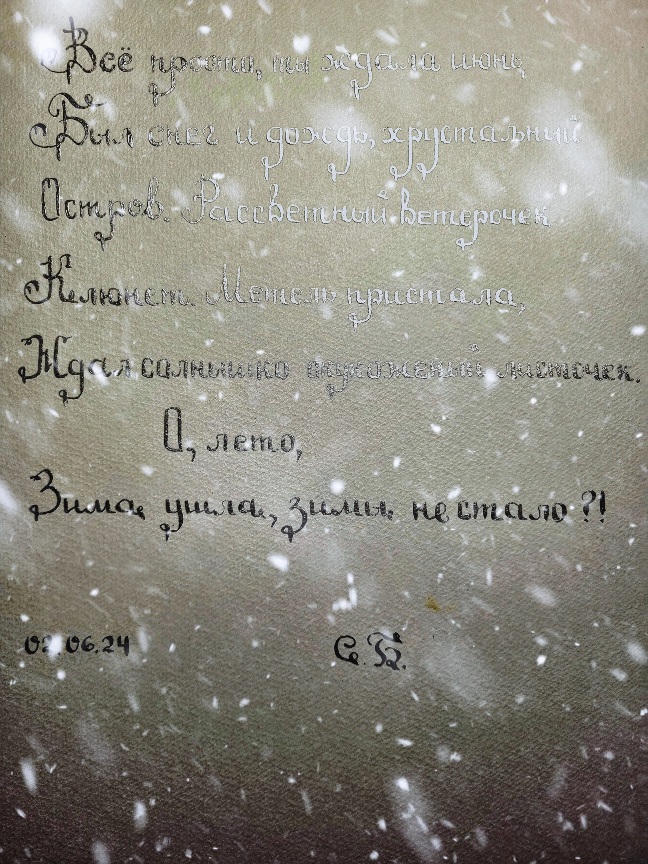 Всё просто, ты ждала июнь,
Был снег и дождь, хрустальный
Остров. Рассветный ветерочек
Клюнет. Метель пристала,
Ждал солнышко скукоженный листочек.
О, лето,
Зима ушла, зимы не стало?!
02.06.24 С.Б.